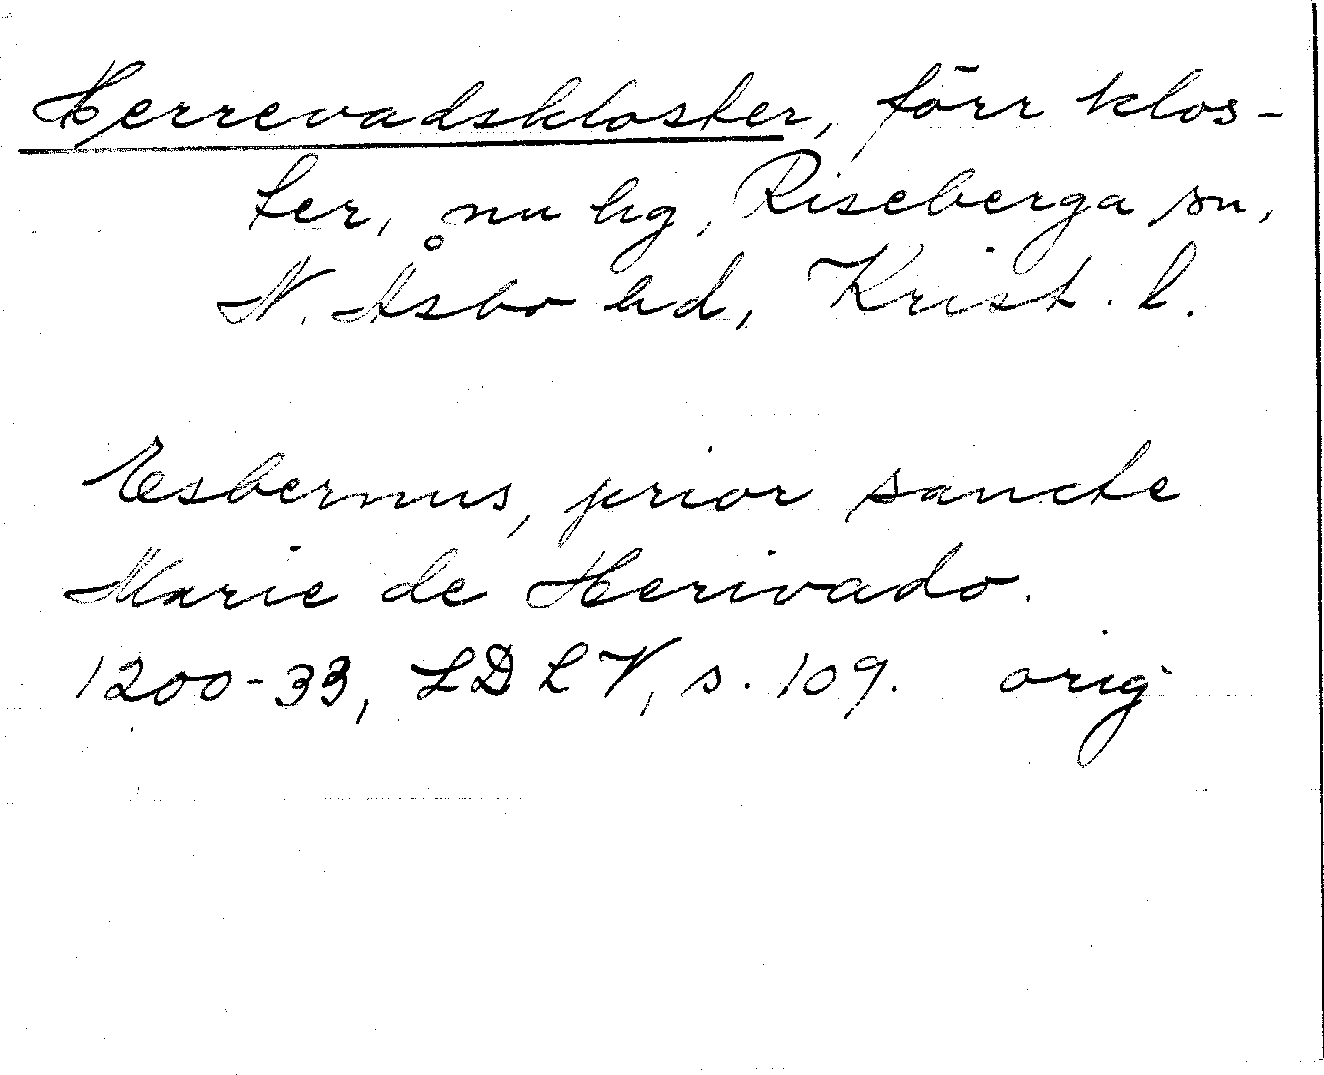 Herrevadskloster, förr klos-
ter, nu hg, Riseberga sn,
N. Åsbo hd, Krist. l.
Esbernus, prior sancte
Marie de Herivado.
1200-33, LDLV, s. 109. orig